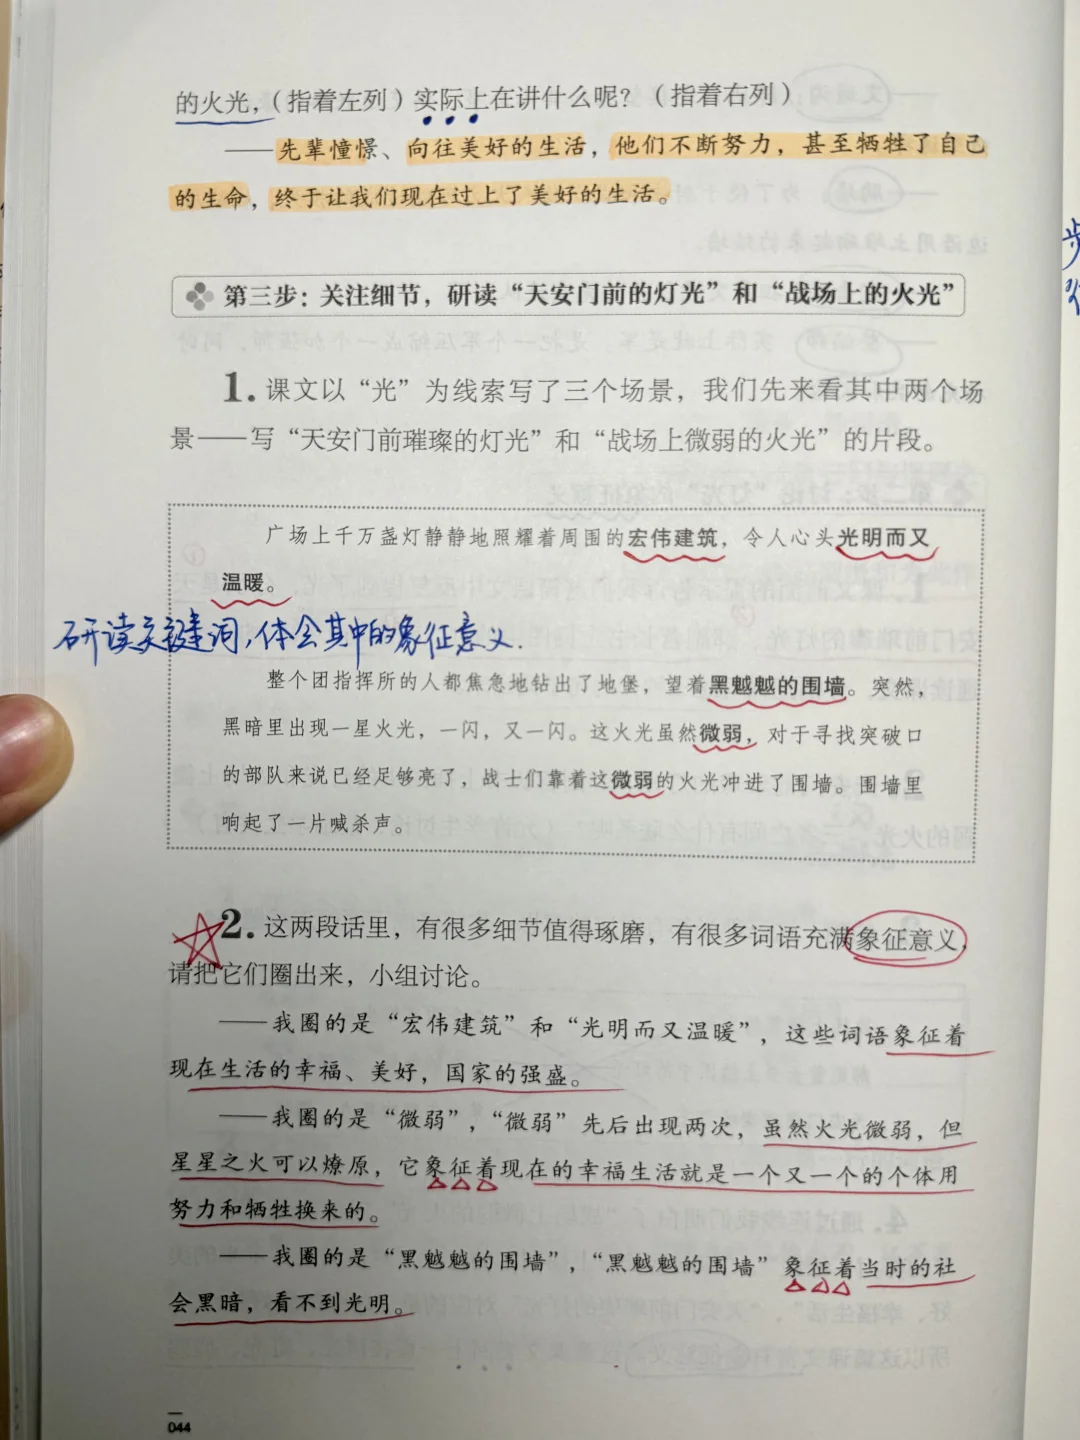 的火光，（指着左列）实际上在讲什么呢？（指着右列）
——先辈憧憬、向往美好的生活，他们不断努力，甚至牺牲了自己
的生命，终于让我们现在过上了美好的生活。
第三步：关注细节，研读“天安门前的灯光”和“战场上的火光”
1. 课文以“光”为线索写了三个场景，我们先来看其中两个场
景——写“天安门前璀璨的灯光”和“战场上微弱的火光”的片段。
广场上千万盏灯静静地照耀着周围的宏伟建筑，令人心头光明而又
温暖。
研读关键词，体会其中的象征意义.
整个团指挥所的人都焦急地钻出了地堡，望着黑魆魆的围墙。突然，
黑暗里出现一星火光，一闪，又一闪。这火光虽然微弱，对于寻找突破口
的部队来说已经足够亮了，战士们靠着这微弱的火光冲进了围墙。围墙里
响起了一片喊杀声。
2. 这两段话里，有很多细节值得琢磨，有很多词语充满象征意义，
请把它们圈出来，小组讨论。
——我圈的是“宏伟建筑”和“光明而又温暖”，这些词语象征着
现在生活的幸福、美好，国家的强盛。
——我圈的是“微弱”，“微弱”先后出现两次，虽然火光微弱，但
星星之火可以燎原，它象征着现在的幸福生活就是一个又一个的个体用
努力和牺牲换来的。
——我圈的是“黑魆魆的围墙”，“黑魆魆的围墙”象征着当时的社
会黑暗，看不到光明。
044